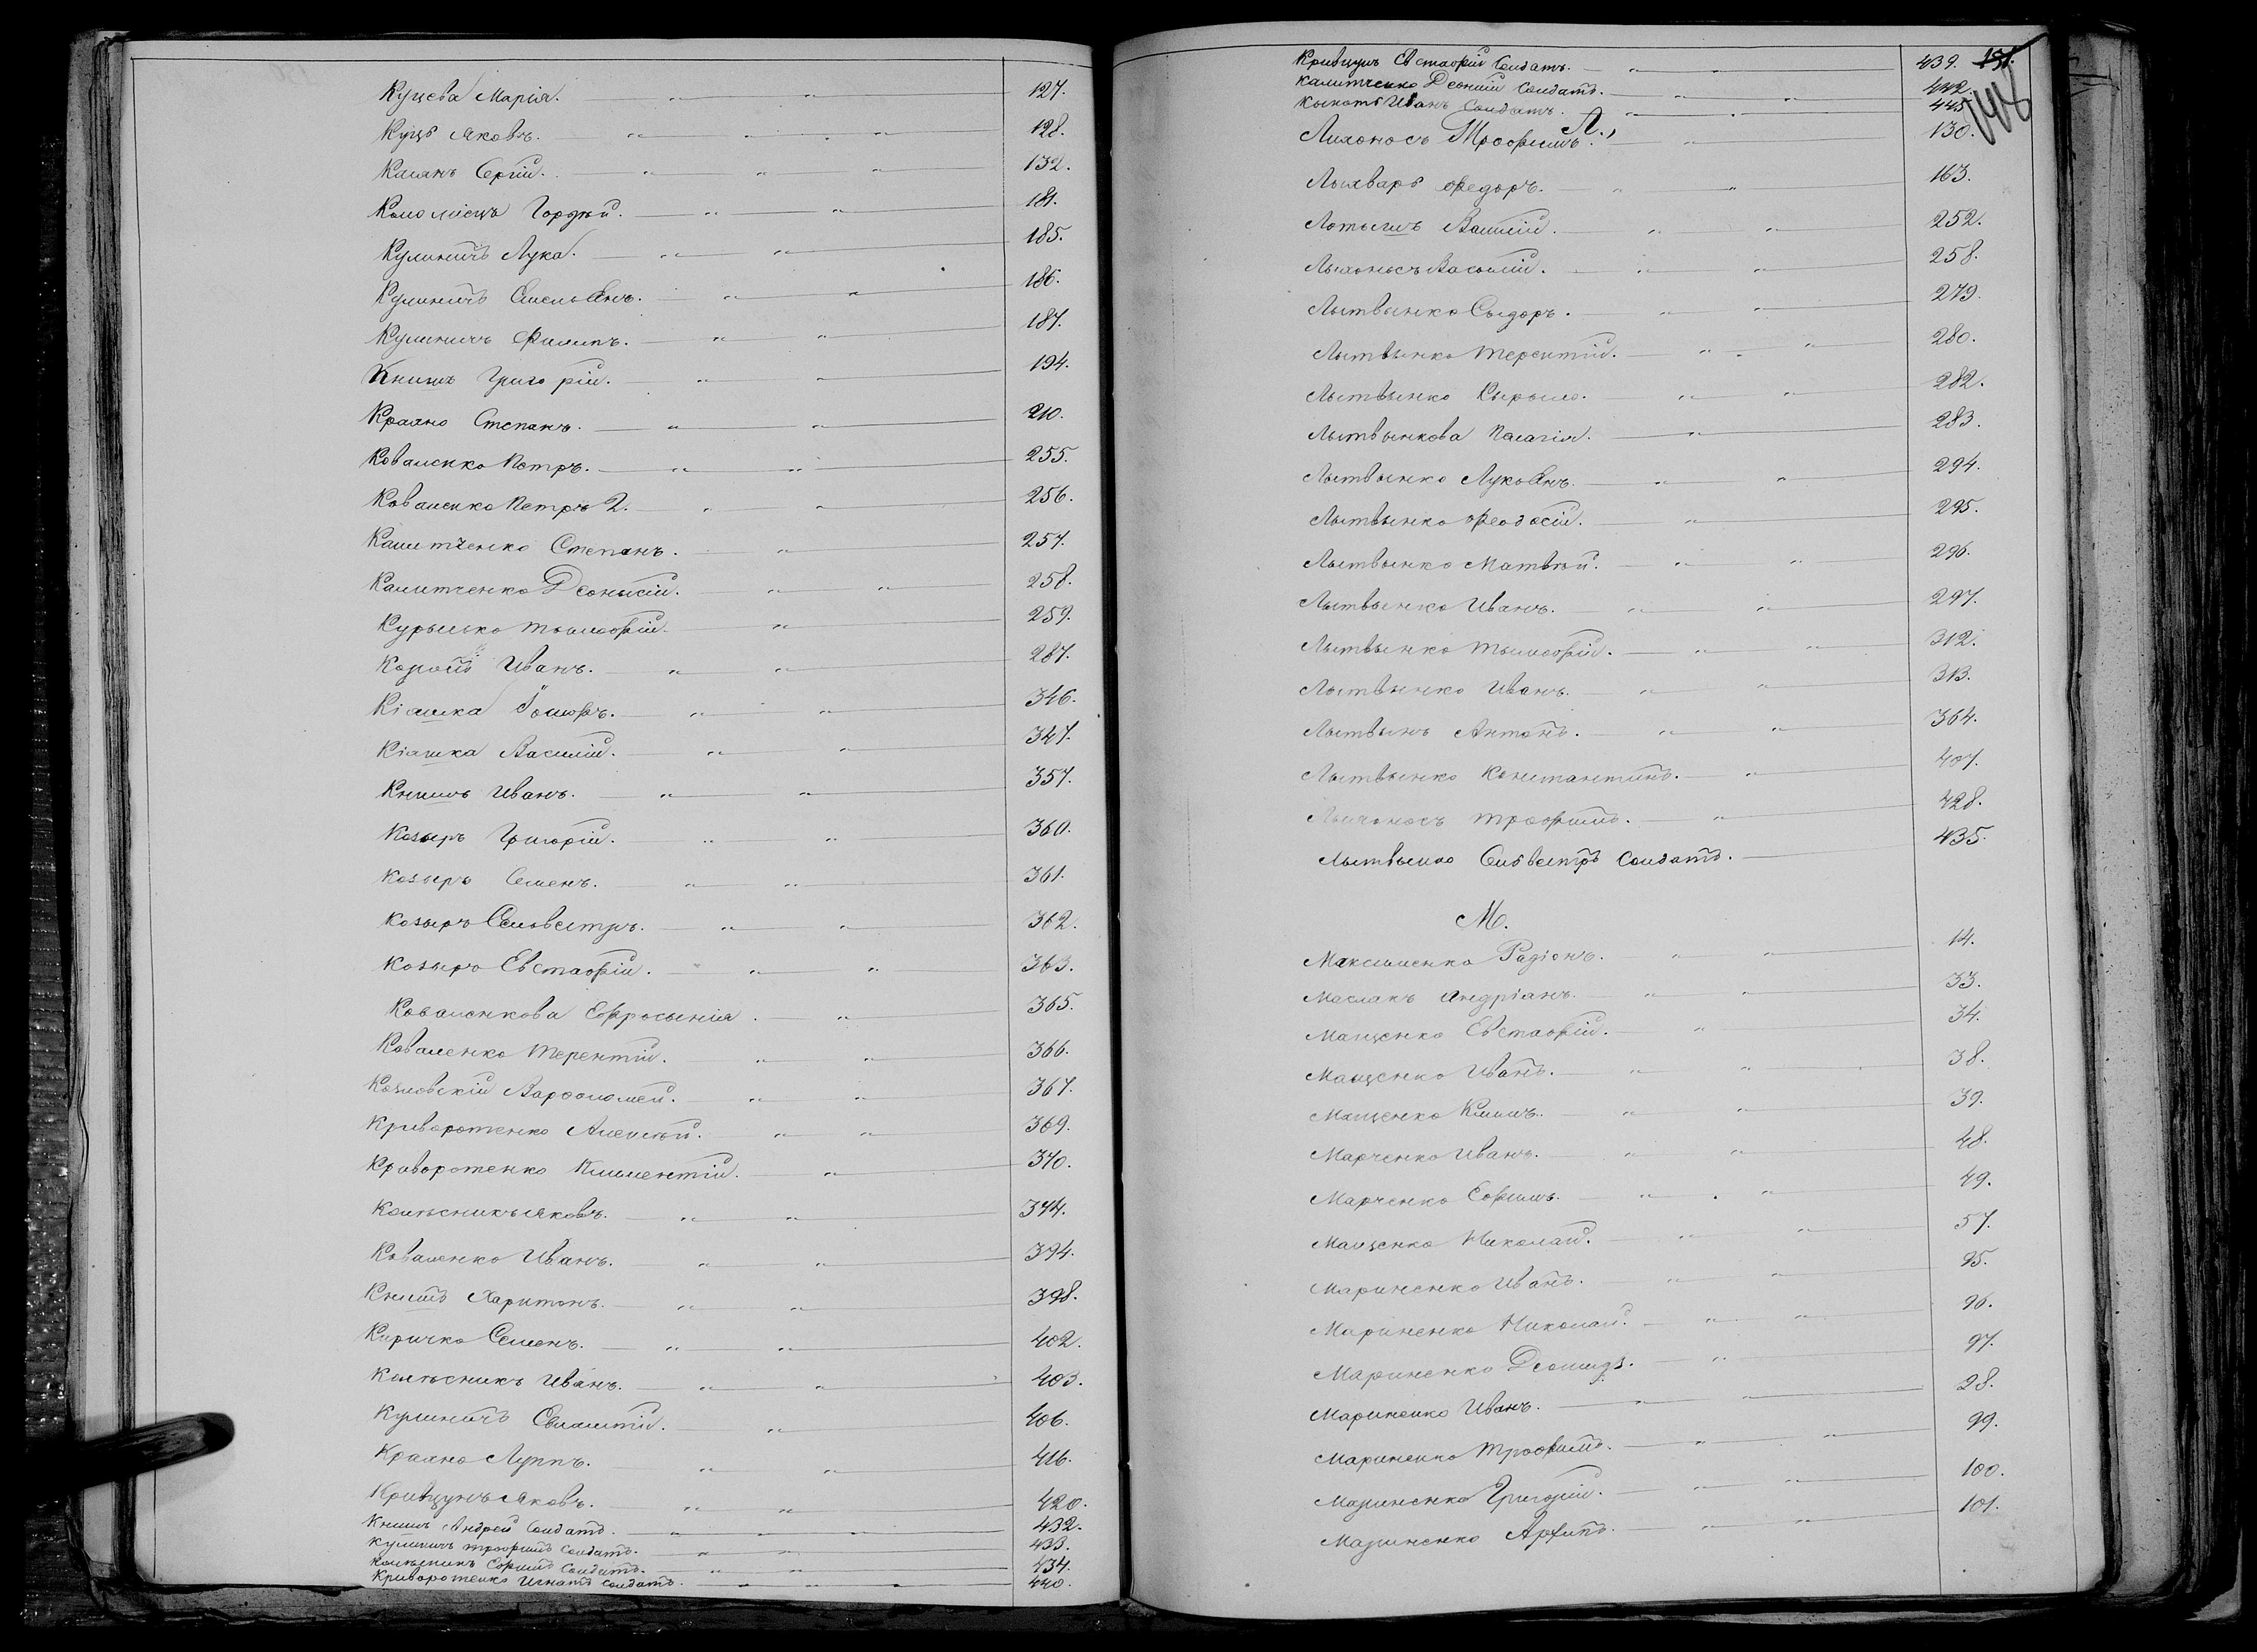 Куцева Марія. 127.
Куцъ Яковъ. 128.
Каланъ Сергій. 132.
Коломіецъ Гордѣй. 181.
Кулиничъ Лука. 185.
Кулиничъ Емельянъ. 186.
Кулиничъ Филипъ. 187.
Книшъ Григорій. 194.
Краяно Степанъ. 210.
Коваленко Петръ. 255.
Коваленко Петръ 2. 256.
Калитченко Степанъ. 257.
Калитченко Деонысій. 258.
Курылько Тымофій. 259.
Иванъ. 287.
Кіашка 346.
Кіашка Василій. 347.
Книшъ Иванъ. 357.
Козыръ Григорій. 360.
Козыръ Семенъ. 361.
Козыръ Селовестръ. 362.
Козыръ Евстафій. 363.
Коваленкова Ефросынія. 365.
Коваленко Терентій. 366.
Козловскій Варфоломей. 367.
Криворотенко Алексѣй. 369.
Криворотенко Климентій. 370.
Колѣсникъ Яковъ. 374.
Коваленко Иванъ. 394.
Книшъ Харитонъ. 398.
Киричко Семенъ. 402.
Колѣсникъ Иванъ. 403.
Кулиничъ 406.
Краяно Луппъ. 416.
Кривцунъ Яковъ. 420.
Книшъ Андрей Солдатъ. 432.
Кулиничъ Трофимъ Солдатъ. 433.
Колѣсникъ Ефимъ Солдатъ. 434.
Криворотенко Игнатъ Солдатъ. 440.
Кривцунъ Евстафій Солдатъ. 439. 151.
Калитченко Деоній Солдатъ. 442.
Иванъ Солдатъ. 445. 148
Л.
Лихоносъ Трофимъ. 130.
Лыхваръ Федоръ. 163.
Лотышъ Василій. 252.
Лыхоносъ Василій. 258.
Лытвынко Сыдоръ. 279.
Лытвынко Терентій. 280.
Лытвынко Кырыло. 282.
Лытвынкова Палагія. 283.
Лытвынко Лукьянъ. 294.
Лытвынко Феодосій. 295.
Лытвынко Матвѣй. 296.
Лытвынко Иванъ. 297.
Лытвынко Тымофій. 312.
Лытвынко Иванъ. 313.
Лытвынъ Антонъ. 364.
Лытвынко Констатинъ. 407.
Лыхоносъ Трофимъ. 428.
Лытвынко Силвестръ Солдатъ. 435.
М.
Максименко Радіонъ. 14.
Маслакъ Андріанъ. 33.
Маценко Евстафій. 34.
Маценко Иванъ. 38.
Маценко Климъ. 39.
Марченко Иванъ. 48.
Марченко Ефимъ. 49.
Маценко Николай. 57.
Мариненко Иванъ. 95.
Мариненко Николай. 96.
Мариненко Деомидъ. 97.
Мариненко Иванъ. 28.
Мариненко Трофимъ. 99.
Мариненко Григорій. 100.
Мариненко Архипъ. 101.